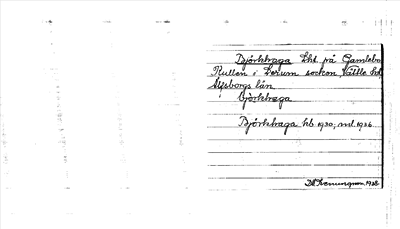 Björkhaga Lht. på Gamlebo
Kullen i Lerum socken, Vättle hd,
Älfsborgs län.
Björkhaga.
Björkhaga hb 1930; ml. 1936
1938